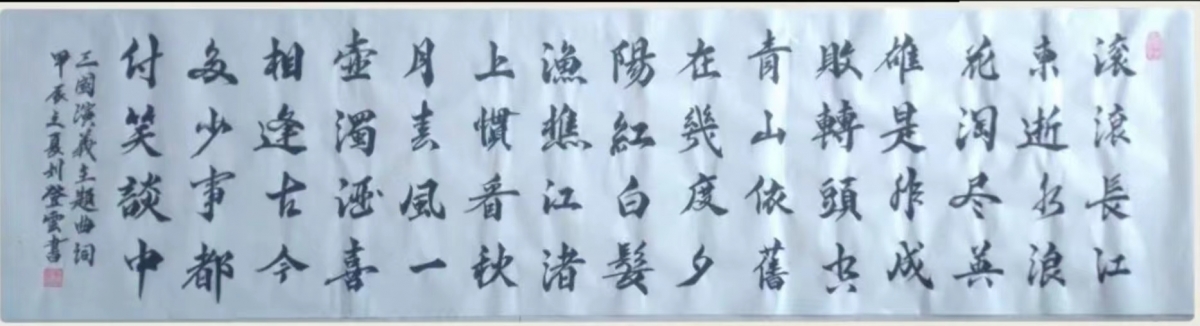 滚滚長江
東逝水浪
花淘尽英
雄是非成
敗轉頭空
青山依舊
在幾度夕
陽紅白髮
漁樵江渚
上慣看秋
月春風一
壺濁酒喜
相逢古今
多少事都
付笑談中
三國演義主題曲詞
甲辰之夏刘登雲書